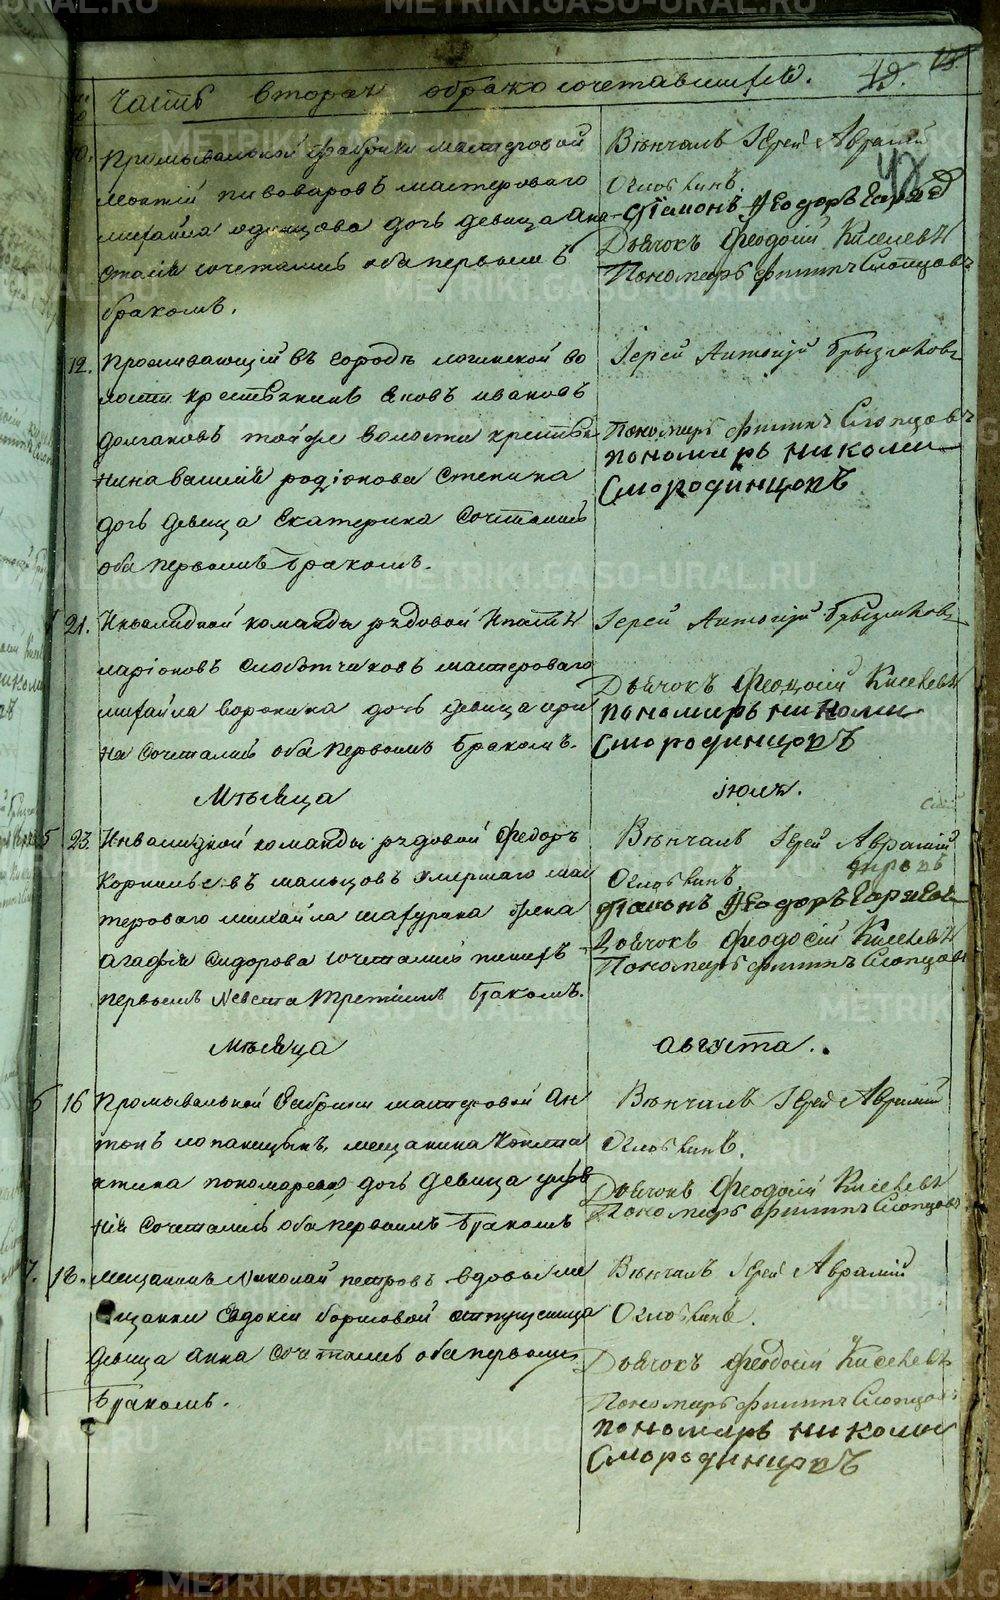 METRIKI.GASO-URAL.RU
часть вторая о бракосочетавшихся.
49.
48
10. Промывальной фабрики мастеровой
пивоваровъ мастероваго
михайла одинцова дочь девица Ана
стасія сочетались оба первымъ
бракомъ.
Вѣнчалъ Іерей Аврамій
Оглоблинъ.
Діаконъ Ѳеодоръ
Дьячокъ Феодосій Киселевъ
Пономарь филипъ Слопцовъ
12. Проживающій въ городѣ логиновской во
лости крестьянинъ яковъ ивановъ
долгановъ тойже волости крестья
нина василія родіонова степина
дочь девица Екатерина Сочетались
оба первымъ бракомъ.
Іерей Антоній Брызгаловъ
Пономарь филипъ Слопцовъ
пономарь николай
Смородинцовъ
21. Инвалидной команды рядовой Ипатъ
ларіоновъ слободчиковъ мастероваго
михайла воронина дочь девица ири
на Сочетались оба первымъ бракомъ.
Іерей Антоній Брызгаловъ
Дьячокъ Феодосій Киселевъ
пономарь николай
Смородинцовъ
Мѣсяца
іюля.
5 23. Инвалидной команды рядовой Федоръ
Корнильевъ мальцовъ умершаго мас
тероваго михайла шатурина жена
агафья Сидорова сочетались женихъ
первымъ Невеста третіимъ бракомъ.
Вѣнчалъ Іерей Аврамій
Оглоблинъ.
Діаконъ Ѳеодоръ
Дьячокъ Феодосій Киселевъ
Пономарь филипъ Слопцовъ
Мѣсяца
августа.
6 16 Промывальной Фабрики мастеровой Ан
тонъ лопаницынъ, мещанина
пономарева дочь девица
Сочетались оба первымъ бракомъ
Вѣнчалъ Іерей Аврамій
Оглоблинъ.
Дьячокъ Феодосій Киселевъ
Пономарь филипъ Слопцовъ
7. 18. мещанинъ Николай петровъ вдовы ме
щанки Евдокіи борисовой
девица анна Сочетались оба первымъ
бракомъ.
Вѣнчалъ Іерей Аврамій
Оглоблинъ.
Дьячокъ Феодосій Киселевъ
Пономарь филипъ Слопцовъ
пономарь николай
Смородинцовъ
METRIKI.GASO-URAL.RU